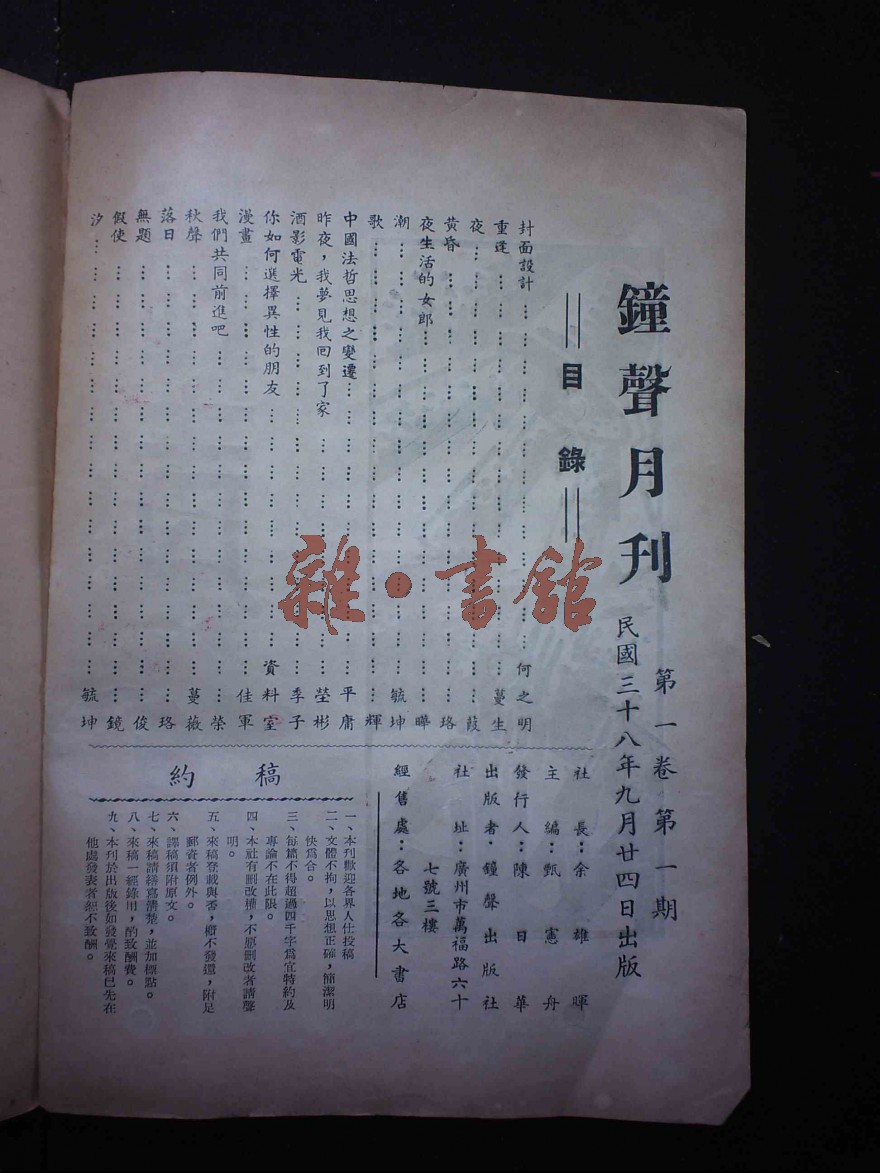 鐘聲月刊
第一卷第一期
民國三十八年九月廿四日出版
＝目錄＝
封面設計………何之明
重逢………蔓生
夜………葭
黃昏………珞
夜生活的女郎………曄
潮………毓坤
歌………輝
中國法哲思想之變遷………平庸
昨夜，我夢見我回到了家………瑩彬
酒影電光………季子
你如何選擇異性的朋友………資料室
漫畫………佳軍
我們共同前進吧………榮
秋聲………蔓薇
落日………珞
無題………俊
假使………鏡
汐………毓坤
社長：余雄暉
主編：甄憲舟
發行人：陳日華
出版者：鐘聲出版社
社址：廣州市萬福路六十
七號三樓
經售處：各地各大書店
稿約
一、本刊歡迎各界人仕投稿
二、文體不拘，以思想正確，簡潔明
快爲合。
三、每篇不得超過四千字爲宜特約及
專論不在此限。
四、本社有刪改權，不願刪改者請聲
明。
五、來稿登載與否，概不發還，附足
郵資者例外。
六、譯稿須附原文。
七、來稿請繕寫清楚，並加標點。
八、來稿一經錄用，酌致酬費。
九、本刊於出版後如發覺來稿已先在
他處發表者恕不致酬。
雜·書館